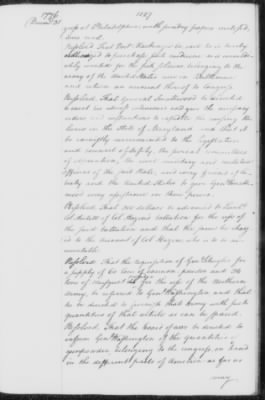 1776
December 31
1227
gress at Philadelphia, with sundry papers enclosed,
were read.
Resolved That
authorized to purchase
necessaries for the sick soldiers belonging to the
army of the United States now in Baltimore
and return an account thereof to Congress
Resolved, That General Smallwood be directed
to exert
orders and instructions to expedite the raising the
Levies in the State of Maryland and that it
be earnestly recommended to the Legislature
and council of safety, the present committees
of observation, the civil military and militia
officers of the said State, and every friend of
and the United States to give Genl Smallwood
every assistance in their power.
Resolved, That 200 dollars be advanced to Lieut
Col. Antill of Col. Hazen's battalion for the use of
the said battalion and that the same be charged
to the account of Col. Hazen who is to be
accountable.
Resolved That the requisition of Genl Schuyler for
a supply of 60 tons of cannon powder and 24
tons of musquet for the use of the northern
Army, be referred to Genl Washington and that
he be desired to furnish that Army with such
quantities of that article as can be spared.
Resolved, That the board of war be directed to
inform Genl Washington of the quantities
gunpowder belonging to the congress on hand
in the different parts of America as far as
may